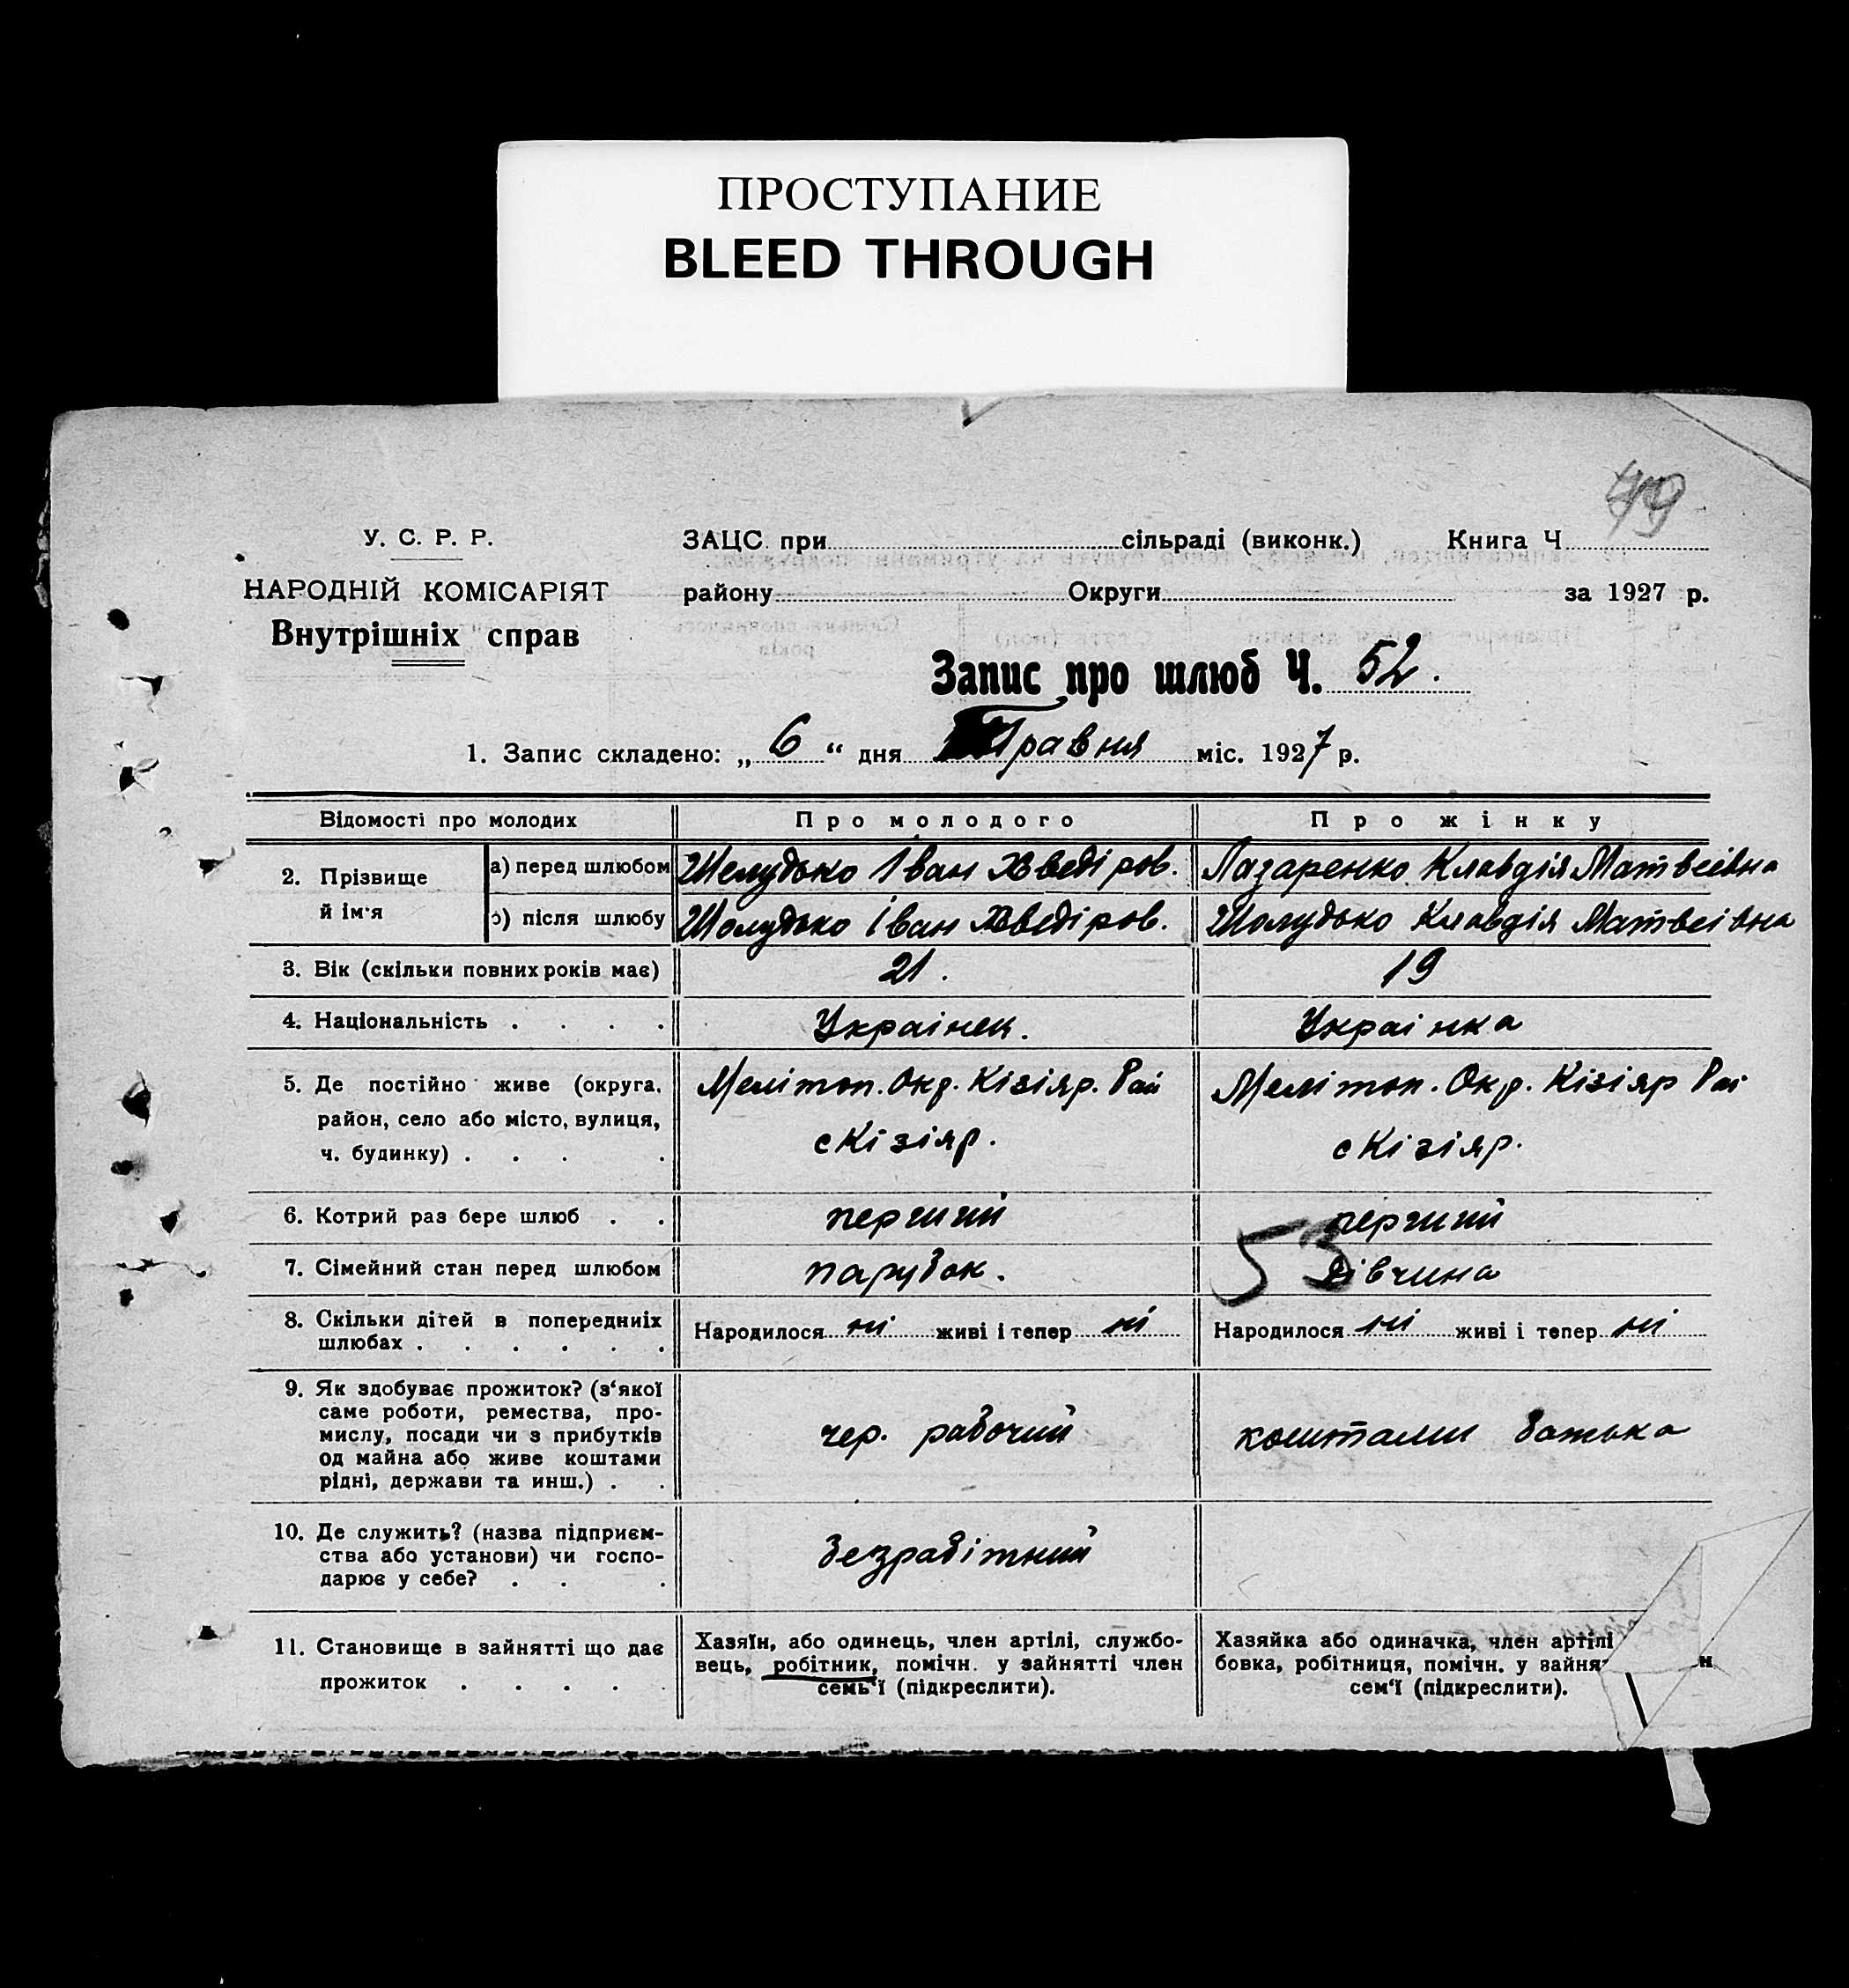 ПРОСТУПАНИЕ
BLEED THROUGH
49
У. С. Р. Р.
НАРОДНІЙ КОМІСАРІЯТ
Внутрішніх справ
ЗАЦС при сільраді (виконк.) Книга Ч
району Округи за 1927 р.
Запис про шлюб Ч. 52.
1. Запис складено: „ 6 “ дня Травня міс. 1927 р.
Відомості про молодих Про молодого Про жінку
2. Прізвище й ім'я
а) перед шлюбом Шелудько Іван Хведіров. Лазаренко Клавдія Матвеівна
б) після шлюбу Шолудько Іван Хведіров. Шолудько Клавдія Матвеівна
3. Вік (скільки повних років має) 21. 19
4. Національність . . . . Украінец. Украінка
5. Де постійно живе (округа, Мелітоп. Окр. Кізіяр. Рай Мелітоп. Окр. Кізіяр Рай
район, село або місто, вулиця, с Кізіяр. с Кізіяр.
ч. будинку) . . . .
6. Котрий раз бере шлюб . . перший перший
7. Сімейний стан перед шлюбом парубок. дівчина
53
8. Скільки дітей в попередніх Народилося ні живі і тепер ні Народилося ні живі і тепер ні
шлюбах . . . . . .
9. Як здобуває прожиток? (з‘якої
саме роботи, ремества, про-
мислу, посади чи з прибутків чер. рабочий коштами батька
од майна або живе коштами
рідні, держави та инш.) . .
10. Де служить? (назва підприєм-
ства або установи) чи госпо- безрабітний
дарює у себе? . . .
11. Становище в зайнятті що дає Хазяїн, або одинець, член артілі, службо- Хазяйка або одиначка, член артілі
прожиток . . . . . вець, робітник, помічн. у зайнятті член бовка, робітниця, помічн. у зайня н
семь‘ї (підкреслити). сем‘ї (підкреслити).